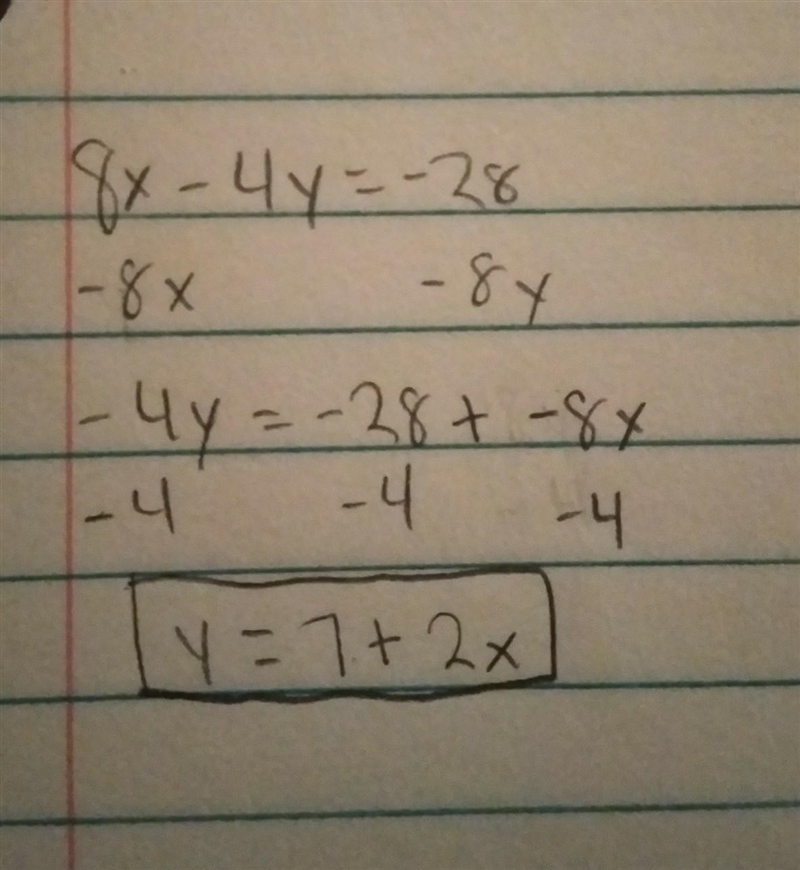 8x - 4y = -28
-8x -8y
-4y = -28 + -8x
-4 -4 -4
y = 7 + 2x